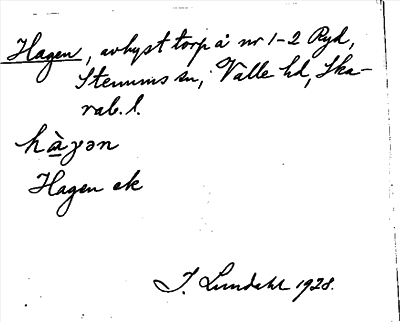 Hagen, avhyst torp å nr 1-2 Ryd,
Stenums sn, Valle hd, Ska-
rab. l.
hàγən
Hagen ek
I. Lundahl 1928.